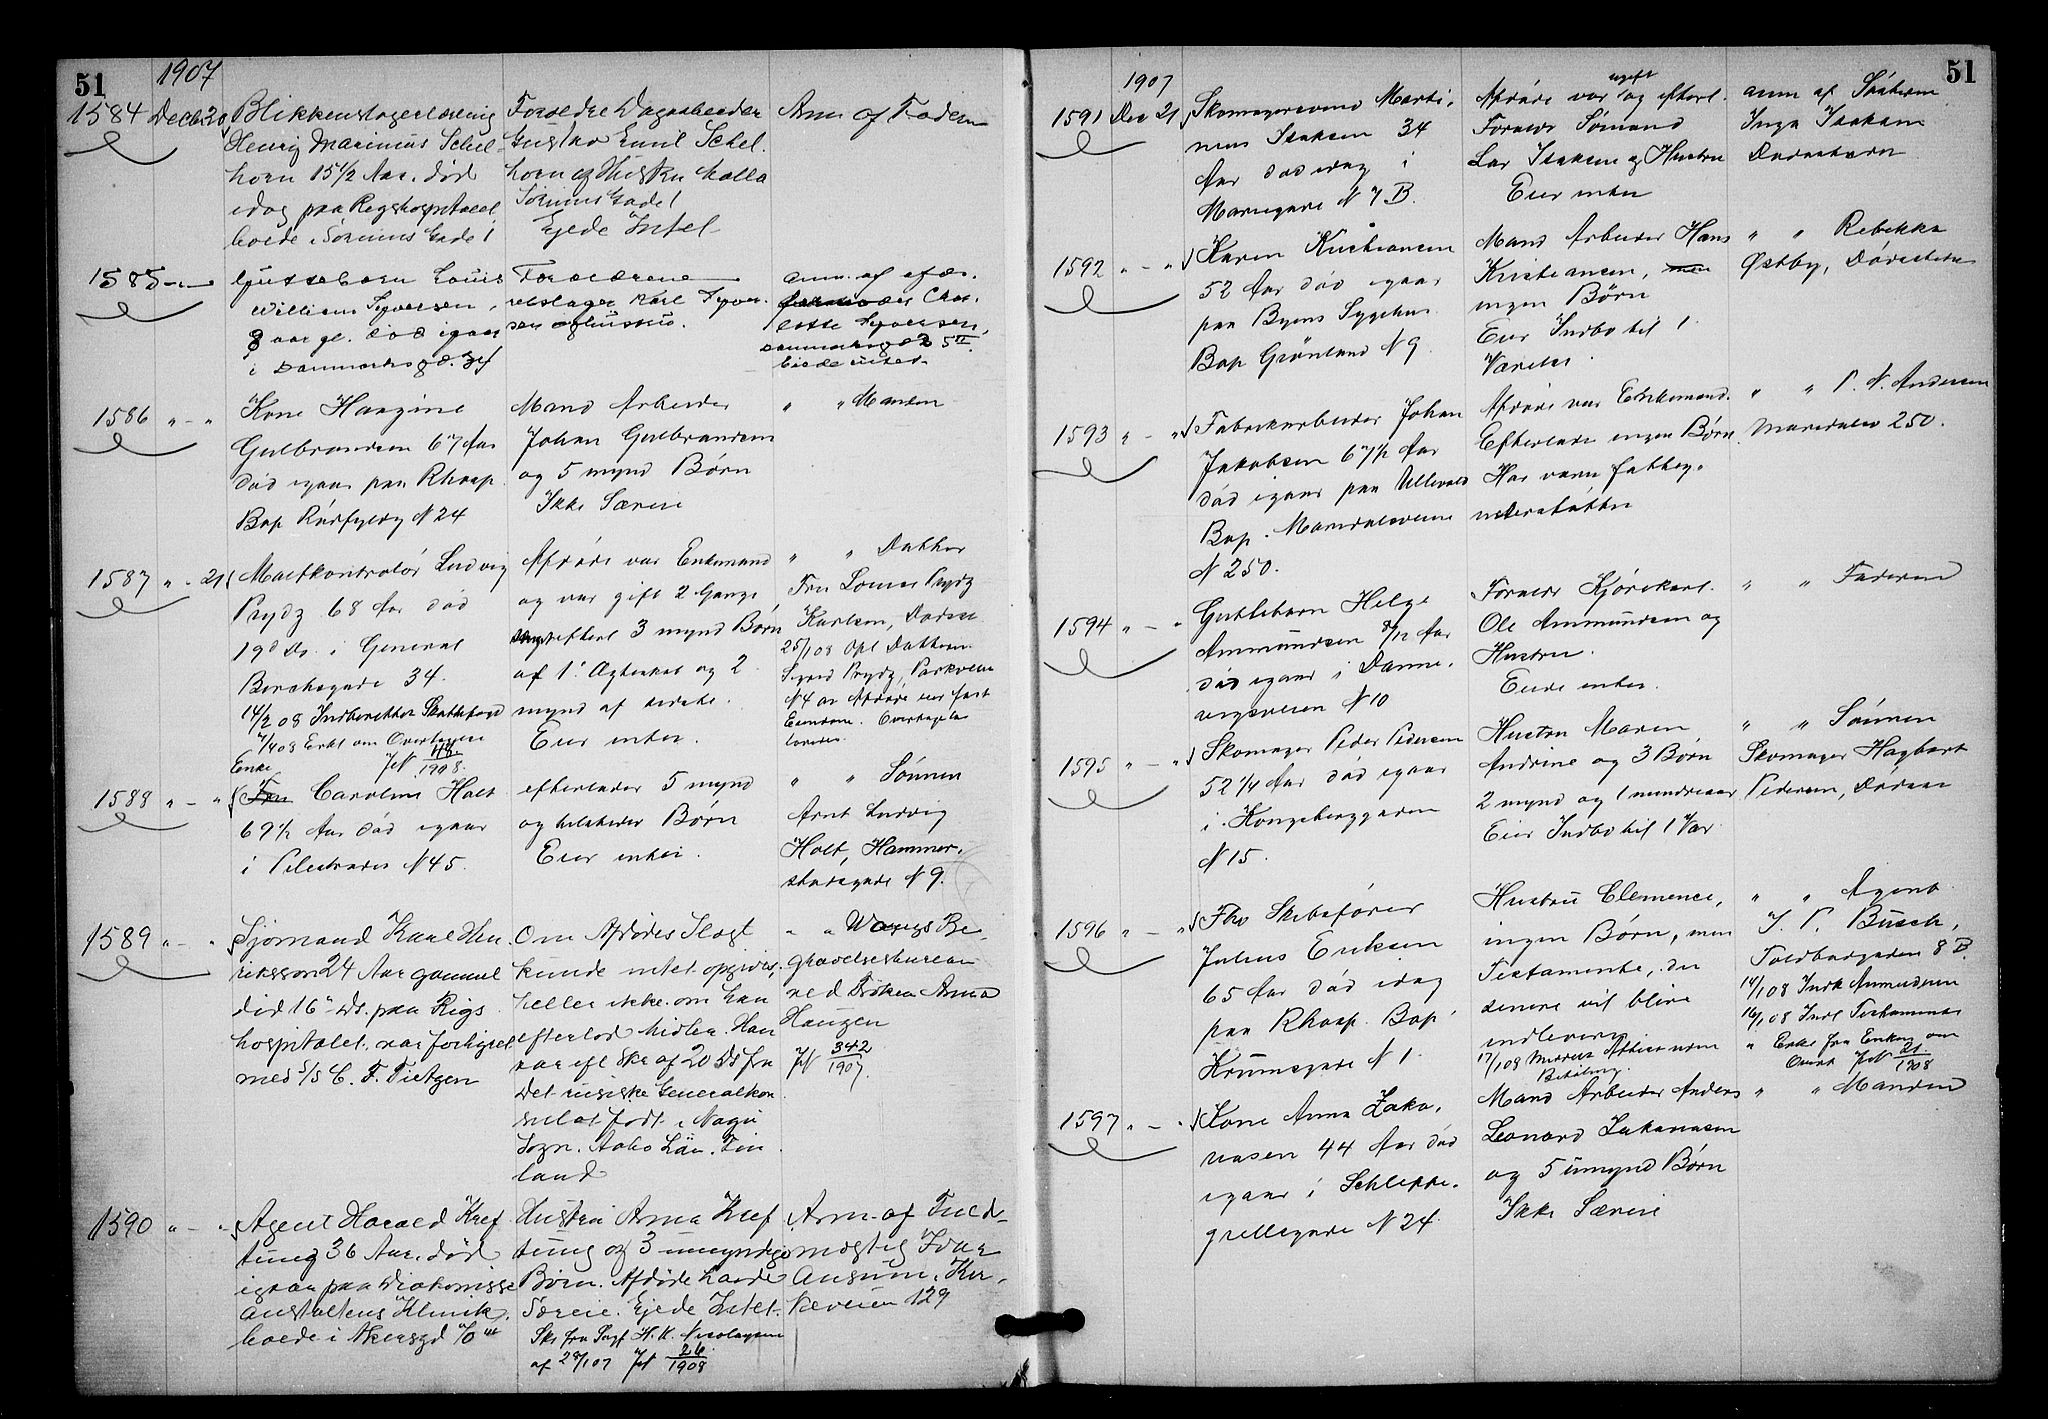 51
1907
1584 Decb. 20 Blikkenslagerlærling
Henrig Marinius Schel-
horn 15 1/2 Aar. død
idag paa Rigshospitalet
boede i Sørums Gade 1
Forældre Dagarbeider
Gustav Emil Schel-
horn og Hustru Malla
Sørums Gade 1
Ejede Intet
Anm. af Faderen
1585 - " - Guttebarn Louis
William Syversen,
8 aar gl. død igaar
i Danmarksgd.
Forældrene
Karl Syver-
sen og hustru.
anm. af afdø.
Char-
lotte Syversen,
Danmarksgd 25 II.
Eiede intet.
1586 " - " Kone Hansine
Gulbrandsen 67 Aar
død igaar paa Rhosp.
Bop Rørfyldg N 24
Mand Arbeider
Johan Gulbrandsen
og 5 mynd Børn
Ikke Særeie
" " Manden
1587 " - 21 Maltkontrolør Ludvig
Prydz 68 Aar død
19d Ds. i General
Birchsgade 34.
14/2 08 Indberetter Skattefogd
7/4 08 Erkl om Overtagelse
JN 48/1908.
Afdøde var Enkemand
og var gift 2 Gange
efterl 3 mynd Børn
af 1' Ægteskab og 2
mynd af sidste.
Eier intet.
" " Datter
Fru Louise Prydz
Karlsen, Dødsat.
25/1 08 Opl Datteren
Sigrid Prydz, Parkveien
N 4 at Afdøde eier fast
Eiendom.
1588 " - " Enke
Fru Caroline Holt
69 1/2 Aar død igaar
i Pilestrædet N 45.
efterlader 5 mynd
og Børn
Eier intet.
" " Sønnen
Arnt Ludvig
Holt, Hammer-
stadsgade N 9.
1589 " - " Sjømand Karl Hen-
riksson 24 Aar gammel
død 16de ds. paa Rigs
hospitalet, var forhyret
med S/S C. F. Tietgen
Om Afdødes Slægt
kunde intet opgives,
heller ikke om han
efterlod Midler. Han
var efl Skr af 20 Ds fra
Det russiske Generalkon-
sulat født i Nagu
Sogn. Aabo Län. Fin
land
" " Wangs Be-
gravelsesbureau
ved Frøken Anna
Hauzen
JN 342/1907.
1590 " - " Agent Harald Kref
ting 36 Aar. død
igaar paa Diakonisse
anstaltens Klinik,
boede i Akersgd 70 III
Hustru Anna Kref
ting og 3 umyndige
Børn. Afdøde havde
Særeie. Ejede Intet.
Skr fra Sagf H. K. Nicolaysen
af 28/1 07 JN 26/1908
Anm. af Fuld-
mægtig Ivar
Ansum. Kir-
keveien 129
51
1907
1591 Dec 21 Skomagersvend Marti-
nius Isaksen 34
Aar død idag i
Mariegade N 7 B.
Afdøde var ugift og efterl.
Forældr Sømand
Lar Isaksen og Hustru
Eier intet
anm af Søsteren
Inga Isaksen
Dødsattesten
1592 " - " Karen Kristiansen
52 Aar død igaar
paa Byens Sygehus
Bop Grønland N 9.
Mand Arbeider Hans
Kristiansen, men
ingen Børn
Eier Indbo til 1
Værelse.
" " Rebekka
Østby, Dødsatt
1593 " - " Fabrikarbeider Johan
Jakobsen 67 1/2 Aar
død igaar paa Ullevold
Bop. Maridalsveien
N 250.
Afdøde var Enkemand.
Efterlader ingen Børn.
Har været fattig-
understøttet
" " P. N. Andersen
Maridalsv 250.
1594 " - " Guttebarn Helge
Ammundsen 8/12 Aar
død igaar i Danne-
vigsveien N 10
Forældr Kjørekarl
Ole Ammundsen og
Hustru.
Eier intet.
" " Faderen
1595 " - " Skomager Peder Pedersen
52 1/4 Aar død igaar
i Kongsberggaden
N 15.
Hustru Maren
Andrine og 3 Børn
2 mynd og 1 mindreaar
Eier Indbo til 1 Vær
" " Sønnen
Skomager Hagbart
Pedersen, Dødsat
1596 " - " Fhv Skibsfører
Julius Eriksen
65 Aar død idag
paa Rhosp. Bop.
Krumsgade N 1.
Hustru Clemence,
ingen Børn, men
Testamente, der
senere vil blive
indleveret
17/1 08
Bevilling.
" " Agent
I. P. Busch,
Toldbodgaden 8 B.
14/1 08 Indk Anmelderen
16/1 08 Indl Testamente
" Erkl fra Enken om
Overt JN 21/1908
1597 " - " Kone Anna Zaka-
riasen 44 Aar død
igaar i Schleppe-
grellsgade N 24.
Mand Arbeider Anders
Leonard Zakariasen
og 5 umynd Børn
Ikke Særeie
" " Manden